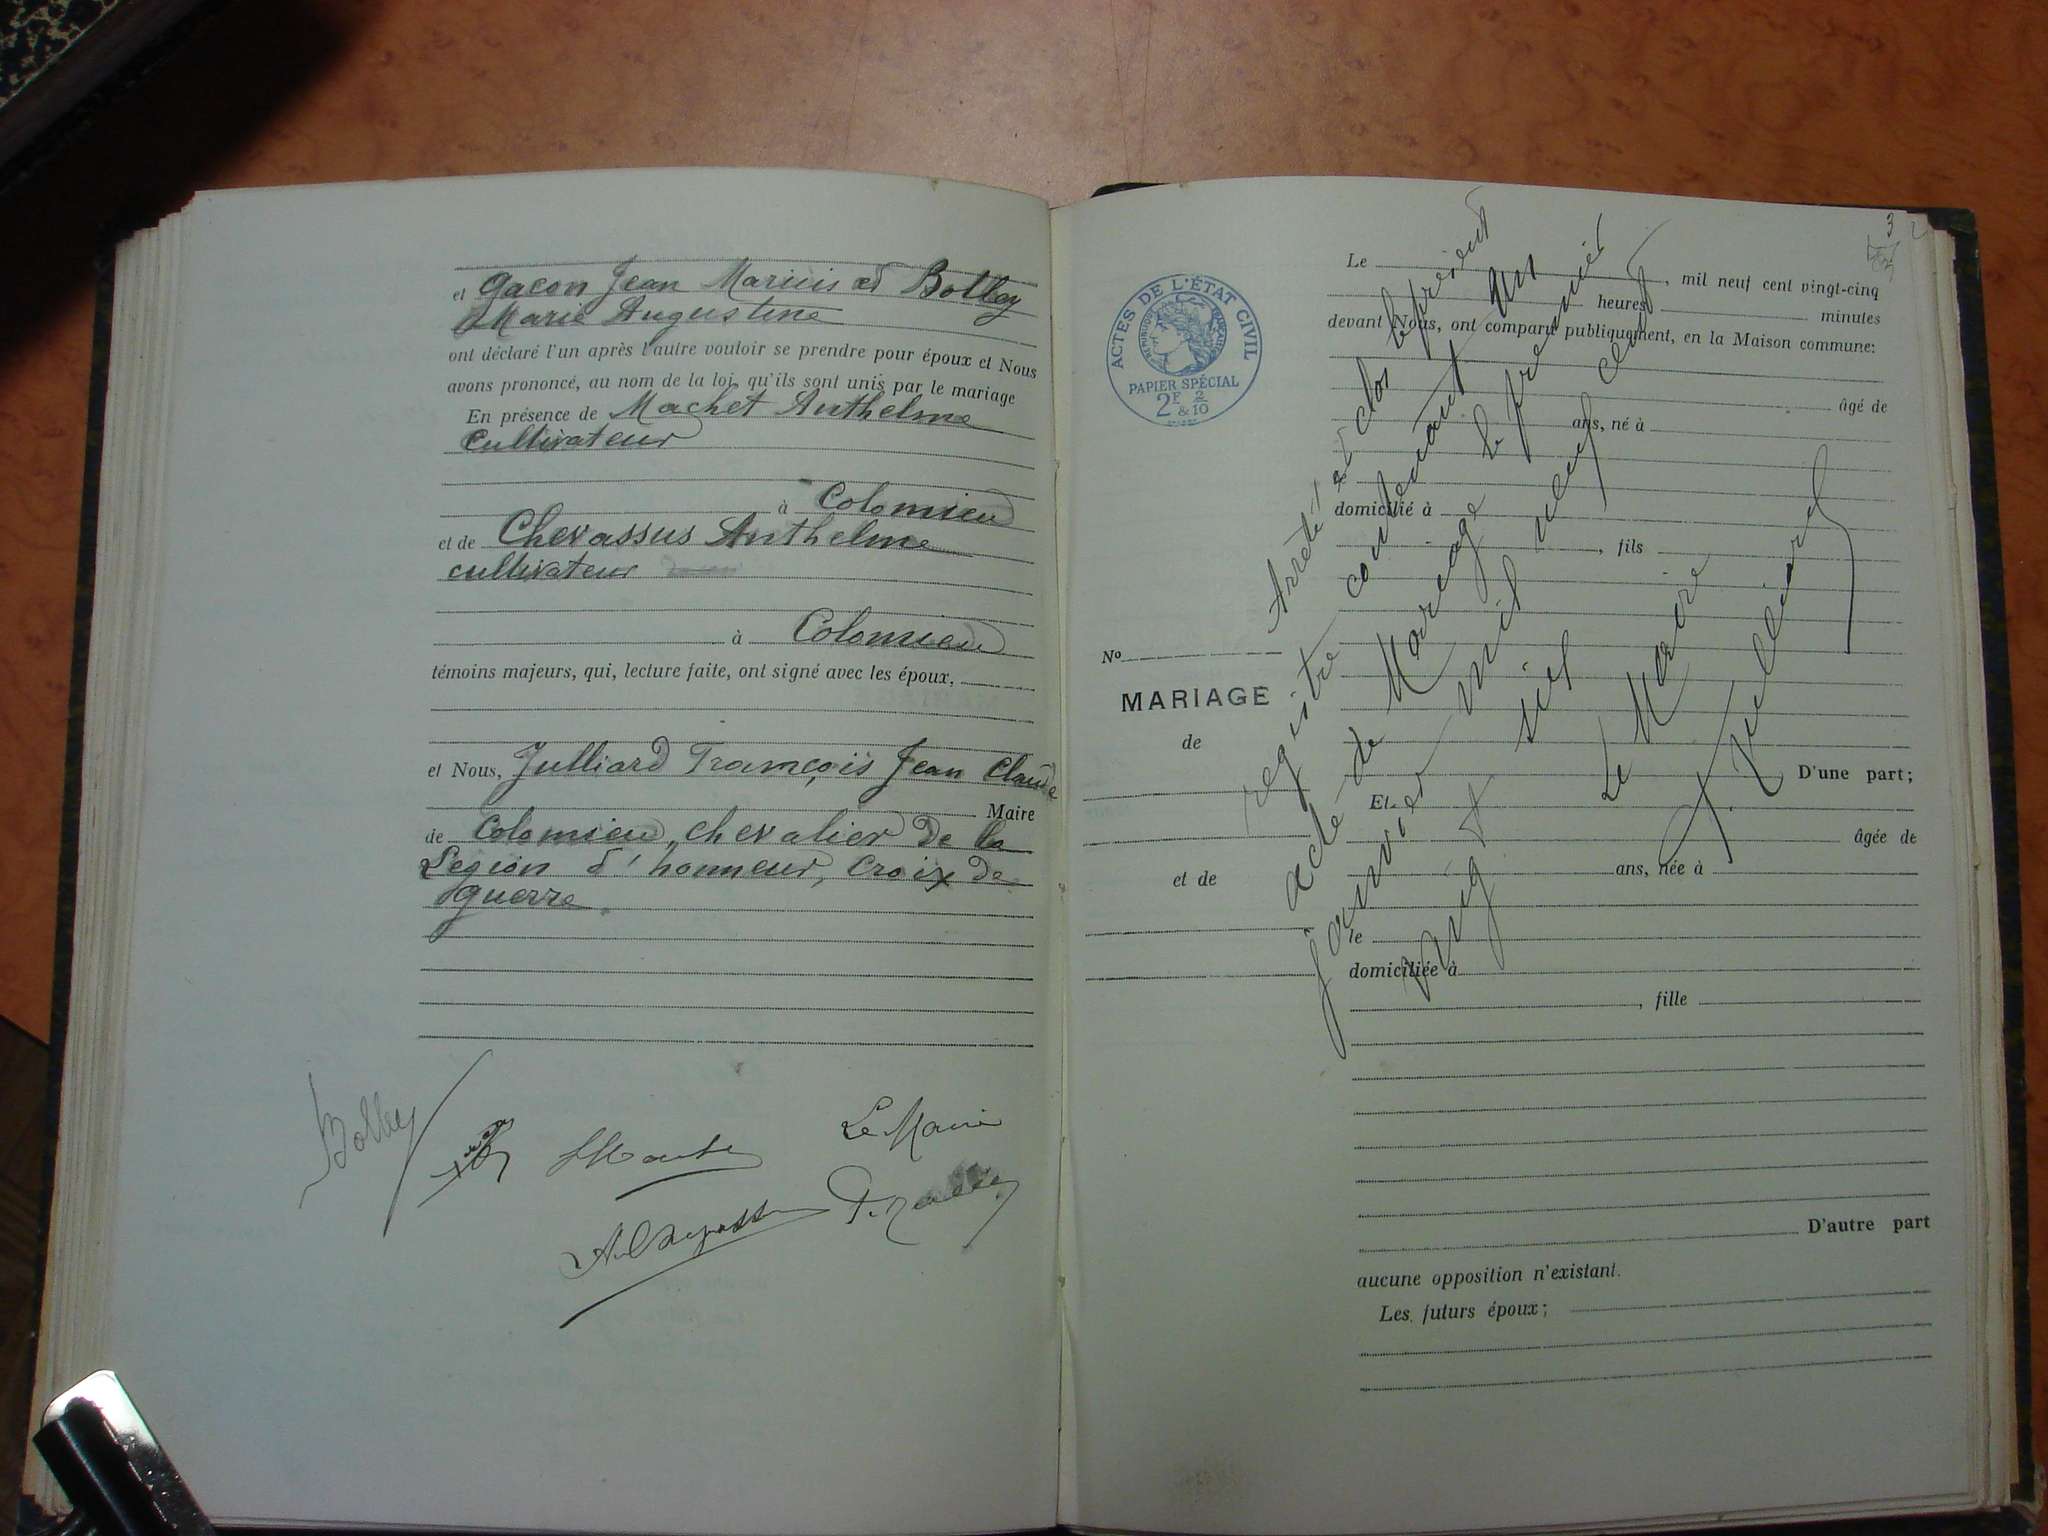 et Gacon Jean Marius et Bolley
Marie Augustine
ont déclaré l'un après l'autre vouloir se prendre pour époux et Nous
avons prononcé, au nom de la loi, qu'ils sont unis par le mariage
En présence de Machet Anthelme
Cultivateur
à Colomieu
et de Chevassus Anthelme
cultivateur
à Colomieu
témoins majeurs, qui, lecture faite, ont signé avec les époux,
et Nous, Julliard François Jean Claude
Maire
de Colomieu, chevalier de la
Legion d'honneur, croix de
guerre
Bolley
Le Maire
3
ACTES DE L'ÉTAT CIVIL
RÉPUBLIQUE FRANÇAISE
PAPIER SPÉCIAL
2F 2/10
&
No
MARIAGE
de
et de
Le , mil neuf cent vingt-cinq
heures minutes
devant Nous, ont comparu publiquement, en la Maison commune:
âgé de
ans, né à
domicilié à
, fils
D'une part;
Et
âgée de
ans, née à
le
domiciliée à
, fille
D'autre part
aucune opposition n'existant.
Les futurs époux;
Arrêté et clos le présent
registre contenant un
acte de Mariage le premier
janvier mil neuf cent
vingt six
Le Maire
F. Julliard